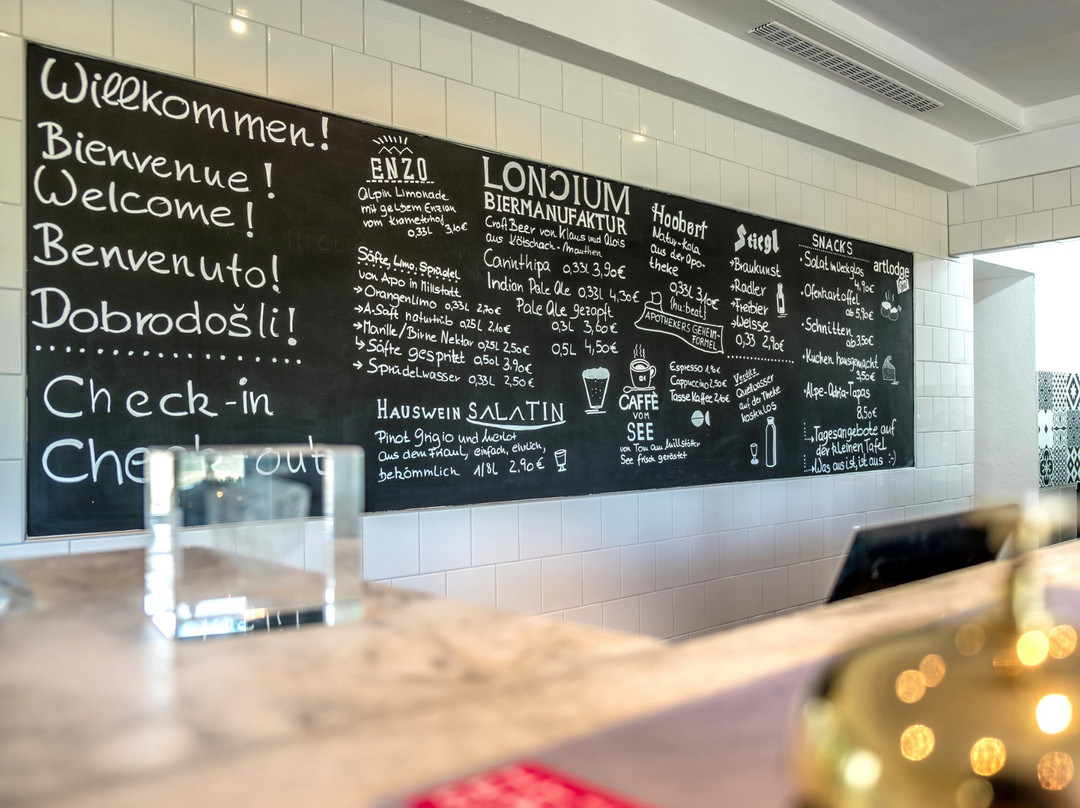 Willkommen!
Bienvenue!
Welcome!
Benvenuto!
Dobrodošli!
Check-in
Check-out
ENZO
Alpin Limonade
mit gelbem Enzian
vom Krameterhof
0,33l 3,10€
Säfte, Limo, Sprudel
von Apo in Millstatt
→ Orangenlimo 0,33l 2,70€
→ A.Saft naturtrüb 0,25l 2,10€
→ Marille/Birne Nektar 0,25l 2,50€
→ Säfte gespritzt 0,50l 3,90€
→ Sprudelwasser 0,33l 2,50€
HAUSWEIN SALATIN
Pinot Grigio und Merlot
aus dem Friaul, einfach, ehrlich,
bekömmlich 1/8l 2,90€
LONCIUM
BIERMANUFAKTUR
Craft Beer von Klaus und Alois
aus Kötschach-Mauthen
Carinthipa 0,33l 3,90€
Indian Pale Ale 0,33l 4,30€
Pale Ale gezapft
0,3l 3,60€
0,5l 4,50€
CAFFÈ
VOM
SEE
Espresso 1,90€
Cappuccino 2,50€
Tasse Kaffee 2,40€
von Tom am Millstätter
See frisch geröstet
Hoobert
Natur-Kola
aus der Apo-
theke
0,33l 3,10€
Pha:beat!
APOTHEKERS GEHEIM-
FORMEL
Stiegl
→ Braukunst
→ Radler
→ Freibier
→ Weisse
0,33 2,90€
Quellwasser
auf der Theke
kostenlos
SNACKS
artlodge
• Salat im Weckglas
4,90€
• Ofenkartoffel
ab 5,90€
• Schnitten
ab 3,50€
• Kuchen hausgemacht
3,50€
• Alpe-Adria-Tapas
8,50€
→ Tagesangebote auf
der kleinen Tafel
→ Was aus ist, ist aus :-)